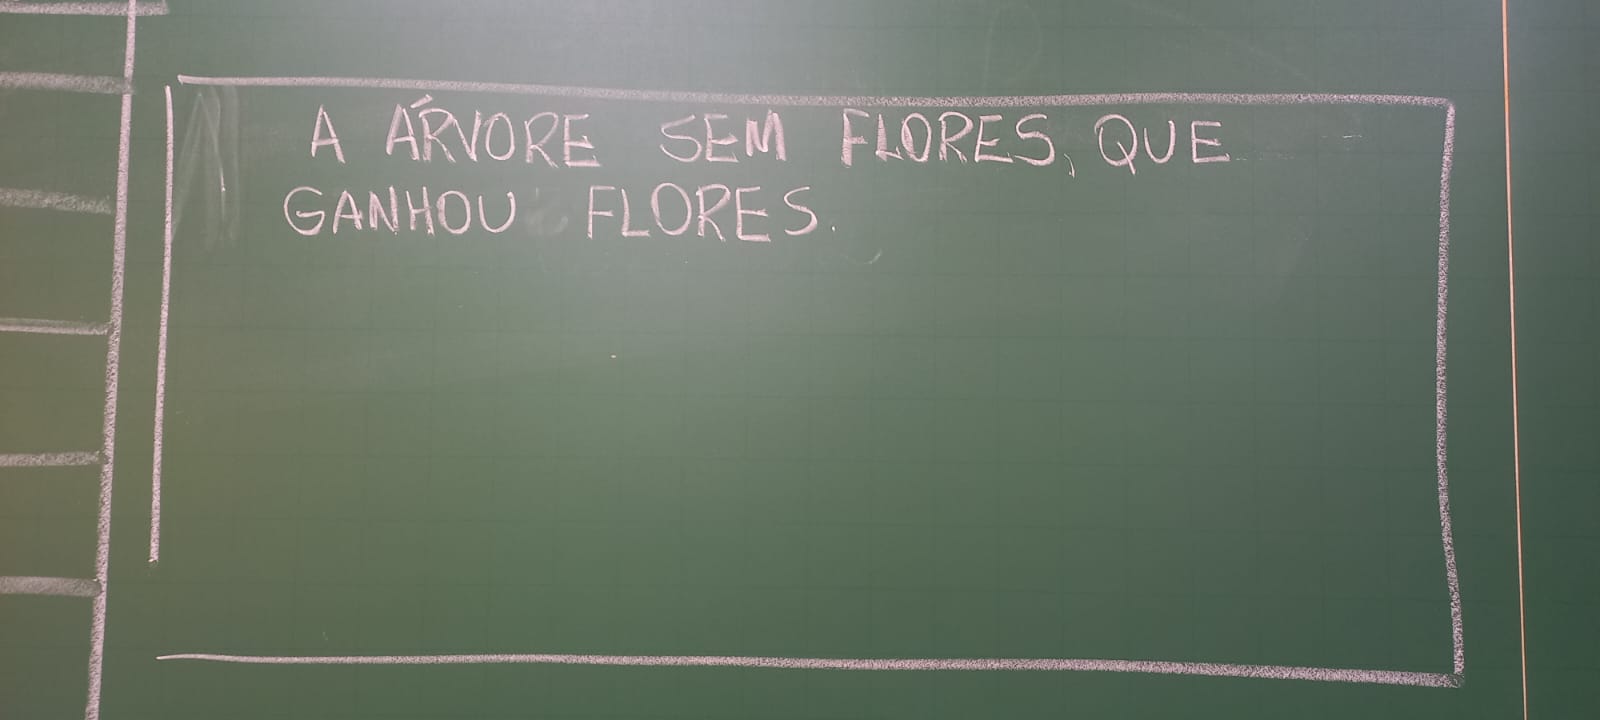 A ÁRVORE SEM FLORES, QUE
GANHOU FLORES.